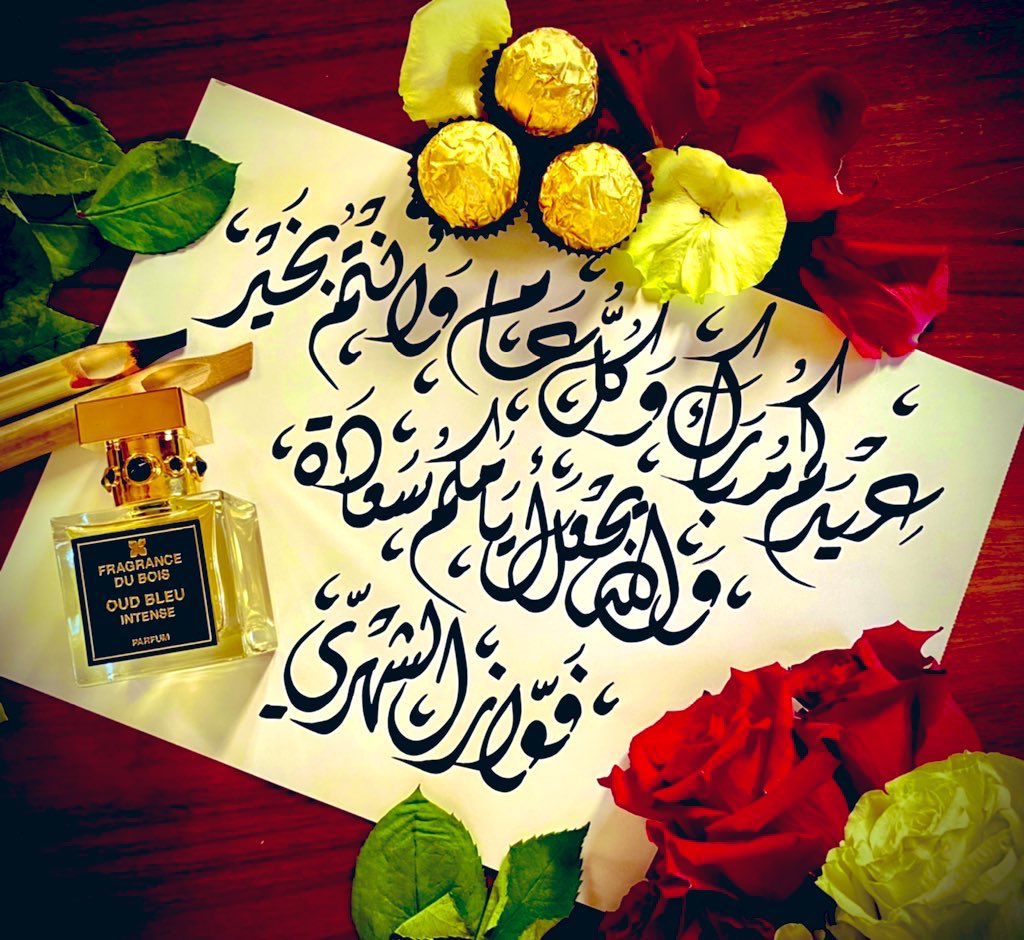 عيدكم مبارك وكل عام وأنتم بخير
والله يجعل أيامكم سعادة
فوّاز الشهري
FRAGRANCE
DU BOIS
OUD BLEU
INTENSE
PARFUM